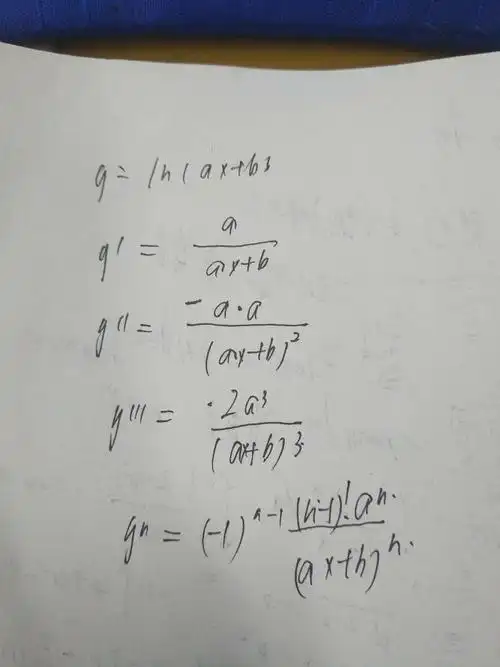 y = ln(ax+b)
y' = a/(ax+b)
y'' = -a·a/(ax+b)²
y''' = ·2a³/(ax+b)3
yⁿ = (-1)ⁿ⁻¹ (n-1)!·aⁿ·/(ax+b)ⁿ·